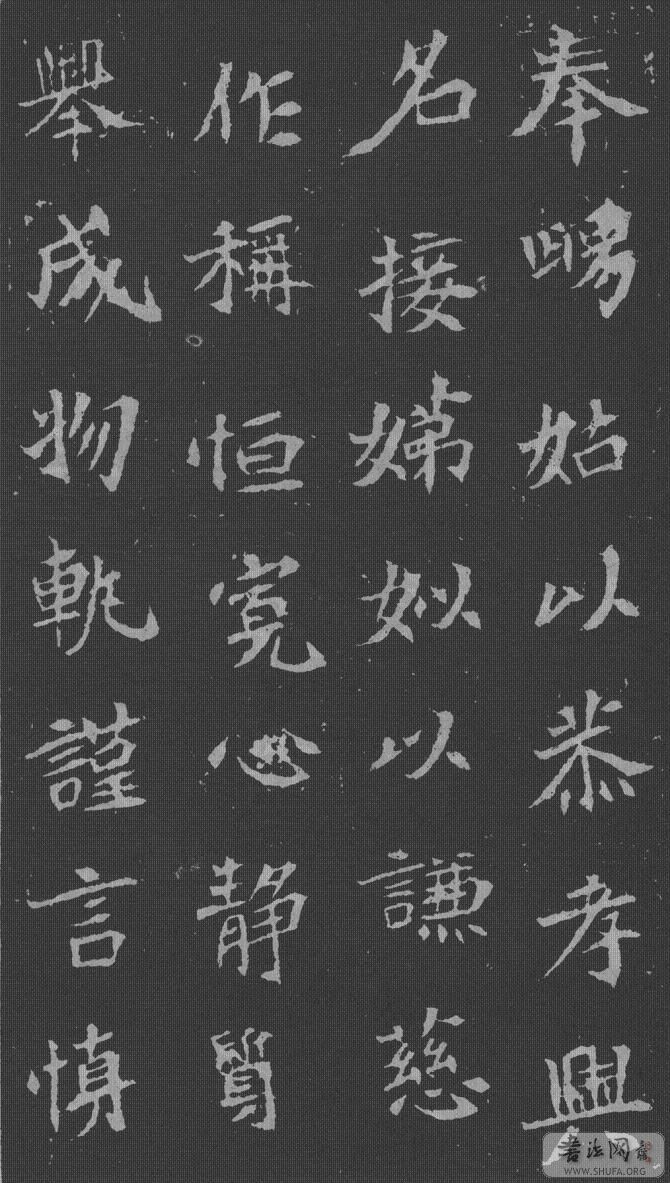 奉舅姑以恭孝興
名接娣姒以謙慈
作稱恒寬心靜質
舉成物軌謹言慎
書法网
WWW.SHUFA.ORG